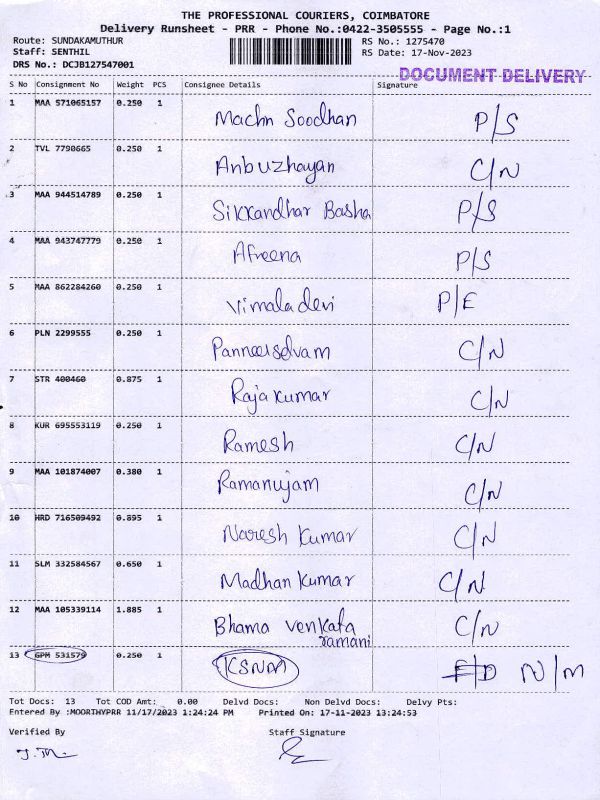 THE PROFESSIONAL COURIERS, COIMBATORE
Delivery Runsheet - PRR - Phone No.:0422-3505555 - Page No.:1
Route: SUNDAKAMUTHUR RS No.: 1275470
Staff: SENTHIL RS Date: 17-Nov-2023
DRS No.: DCJB127547001
DOCUMENT DELIVERY
S No Consignment No Weight PCS Consignee Details Signature
1 MAA 571065157 0.250 1 Machn Soodhan P/S
2 TVL 7790665 0.250 1 Anbuzhayan C/N
3 MAA 944514789 0.250 1 Sikkandhar Basha P/S
4 MAA 943747779 0.250 1 Afreena P/S
5 MAA 862284260 0.250 1 Vimala devi P/E
6 PLN 2299555 0.250 1 Panneerselvam C/N
7 STR 400460 0.875 1 Raja kumar C/N
8 KUR 695553119 0.250 1 Ramesh C/N
9 MAA 101874007 0.380 1 Ramanujam C/N
10 HRD 716509492 0.895 1 Naresh Kumar C/N
11 SLM 332584567 0.650 1 Madhan Kumar C/N
12 MAA 105339114 1.885 1 Bhama Venkata C/N
ramani
13 GPM 531579 0.250 1 KSNM F/D N/M
Tot Docs: 13 Tot COD Amt: 0.00 Delvd Docs: Non Delvd Docs: Delvy Pts:
Entered By :MOORTHYPRR 11/17/2023 1:24:24 PM Printed On: 17-11-2023 13:24:53
Verified By Staff Signature